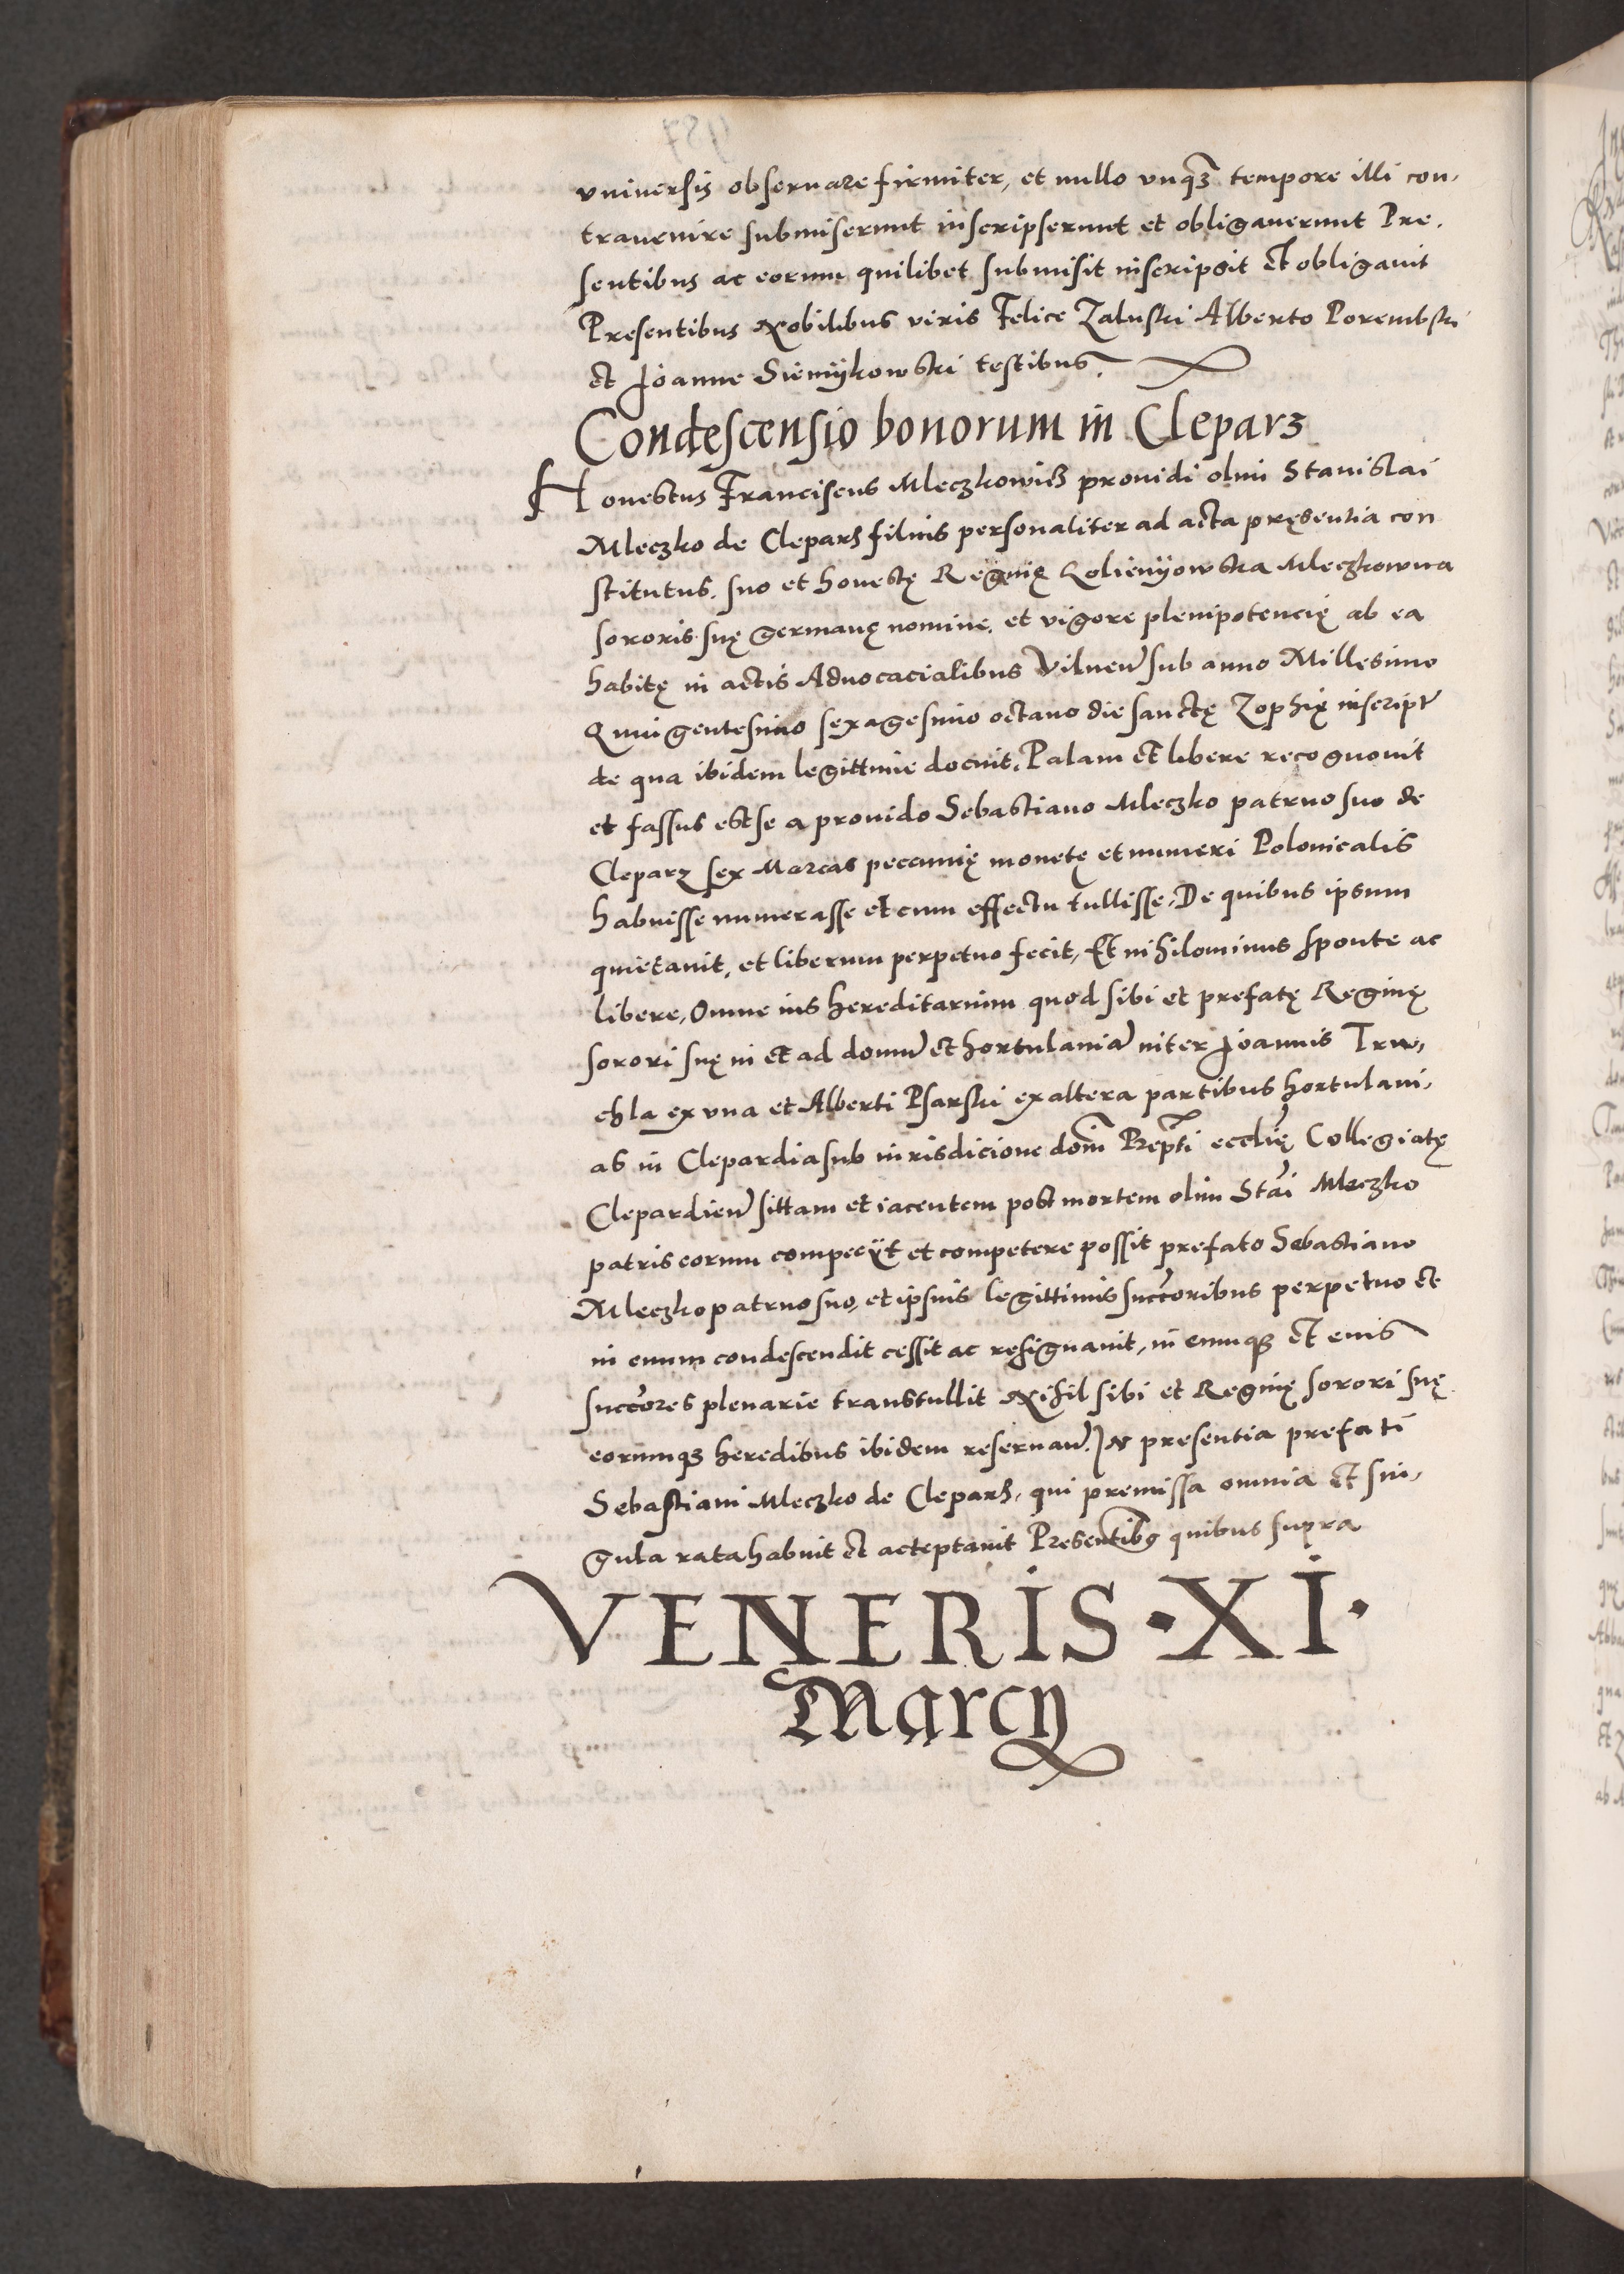 vniuersis obseruare firmiter, et nullo vnq3 tempore illi con,
trauenire submiserunt inscripserunt et obligauerunt Pre,
sentibus ac eorum quilibet submisit inscripsit et obligauit
Presentibus Nobilibus viris Felice Zaluski Alberto Porembski
et Joanne Siemykowski testibus.
Condescensio bonorum in Cleparz
Honestus Franciscus Mleczkowicz prouidi olim Stanislai
Mleczko de Cleparz filius personaliter ad acta pręsentia con
stitutus. suo et honestę Reginę Mleczkowna
sororis suę germanę nomine, et vigore plenipotencię ab ea
habitę in actis Aduocacialibus Vilnen sub anno Millesimo
Quingentesimo sexagesimo octauo die sanctę Zophię inscript
de qua ibidem legittime docuit, Palam et libere recognouit
et fassus est se a prouido Sebastiano Mleczko patruo suo de
Cleparz sex Marcas peccunię monetę et numeri Polonicalis
habuisse numerasse et cum effectu tullisse, De quibus ipsum
quietauit, et liberum perpetuo fecit, Et nihilominus sponte ac
libere, Omne ius hereditarium quod sibi et prefatę Reginę
sorori suę in et ad domu et hortulania inter Joannis Tru,
chla ex vna et Alberti Psarski ex altera partibus hortulani,
as in Clepardia sub iurisdicione dom Prepti ecclię Collegiatę
Clepardien sittam et iacentem post mortem olim Stai Mleczko
patris eorum compecyt et competere possit prefato Sebastiano
Mleczko patruo suo, et ipsius legittimis succoribus perpetuo et
in euum condescendit cessit ac resignauit, in eumq3 et euis
succores plenarie transtullit Nihil sibi et Reginę sorori suę
eorumq3 heredibus ibidem reseruan. In presentia prefati
Sebastiani Mleczko de Cleparz, qui premissa omnia et sin,
gula rata habuit et acteptauit Presentibg quibus supra
VENERIS · XI ·
Marcy